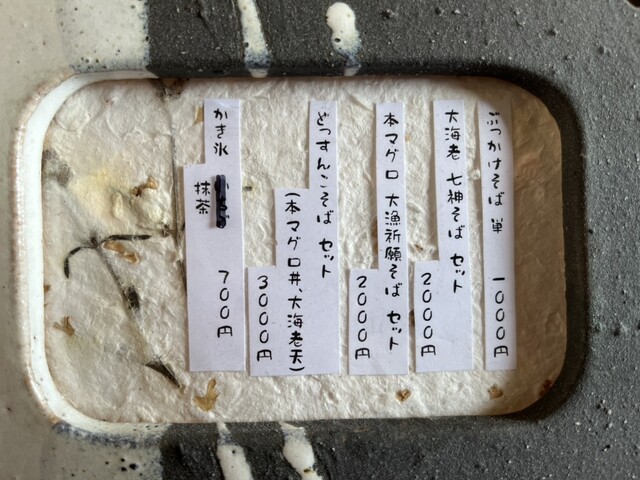 ぶっかけそば 単 一〇〇〇円
大海老 七神そば セット
二〇〇〇円
本マグロ 大漁祈願そば セット
二〇〇〇円
どっすんこそば セット
(本マグロ丼、大海老天)
3000円
かき氷
抹茶 700円